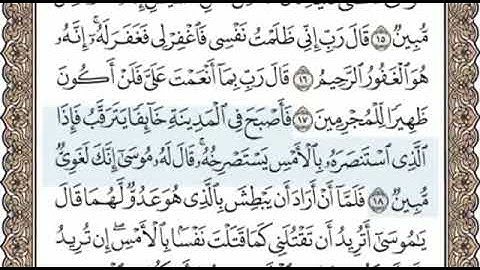 مُّبِينٌ ۝١٥ قَالَ رَبِّ إِنِّي ظَلَمْتُ نَفْسِي فَٱغْفِرْ لِي فَغَفَرَ لَهُۥٓۚ إِنَّهُۥ
هُوَ ٱلْغَفُورُ ٱلرَّحِيمُ ۝١٦ قَالَ رَبِّ بِمَآ أَنْعَمْتَ عَلَيَّ فَلَنْ أَكُونَ
ظَهِيرًا لِّلْمُجْرِمِينَ ۝١٧ فَأَصْبَحَ فِي ٱلْمَدِينَةِ خَآئِفًا يَتَرَقَّبُ فَإِذَا
ٱلَّذِي ٱسْتَنصَرَهُۥ بِٱلْأَمْسِ يَسْتَصْرِخُهُۥۚ قَالَ لَهُۥ مُوسَىٰٓ إِنَّكَ لَغَوِيٌّ
مُّبِينٌ ۝١٨ فَلَمَّآ أَنْ أَرَادَ أَن يَبْطِشَ بِٱلَّذِي هُوَ عَدُوٌّ لَّهُمَا قَالَ
يَٰمُوسَىٰٓ أَتُرِيدُ أَن تَقْتُلَنِي كَمَا قَتَلْتَ نَفْسًۢا بِٱلْأَمْسِۖ إِن تُرِيدُ